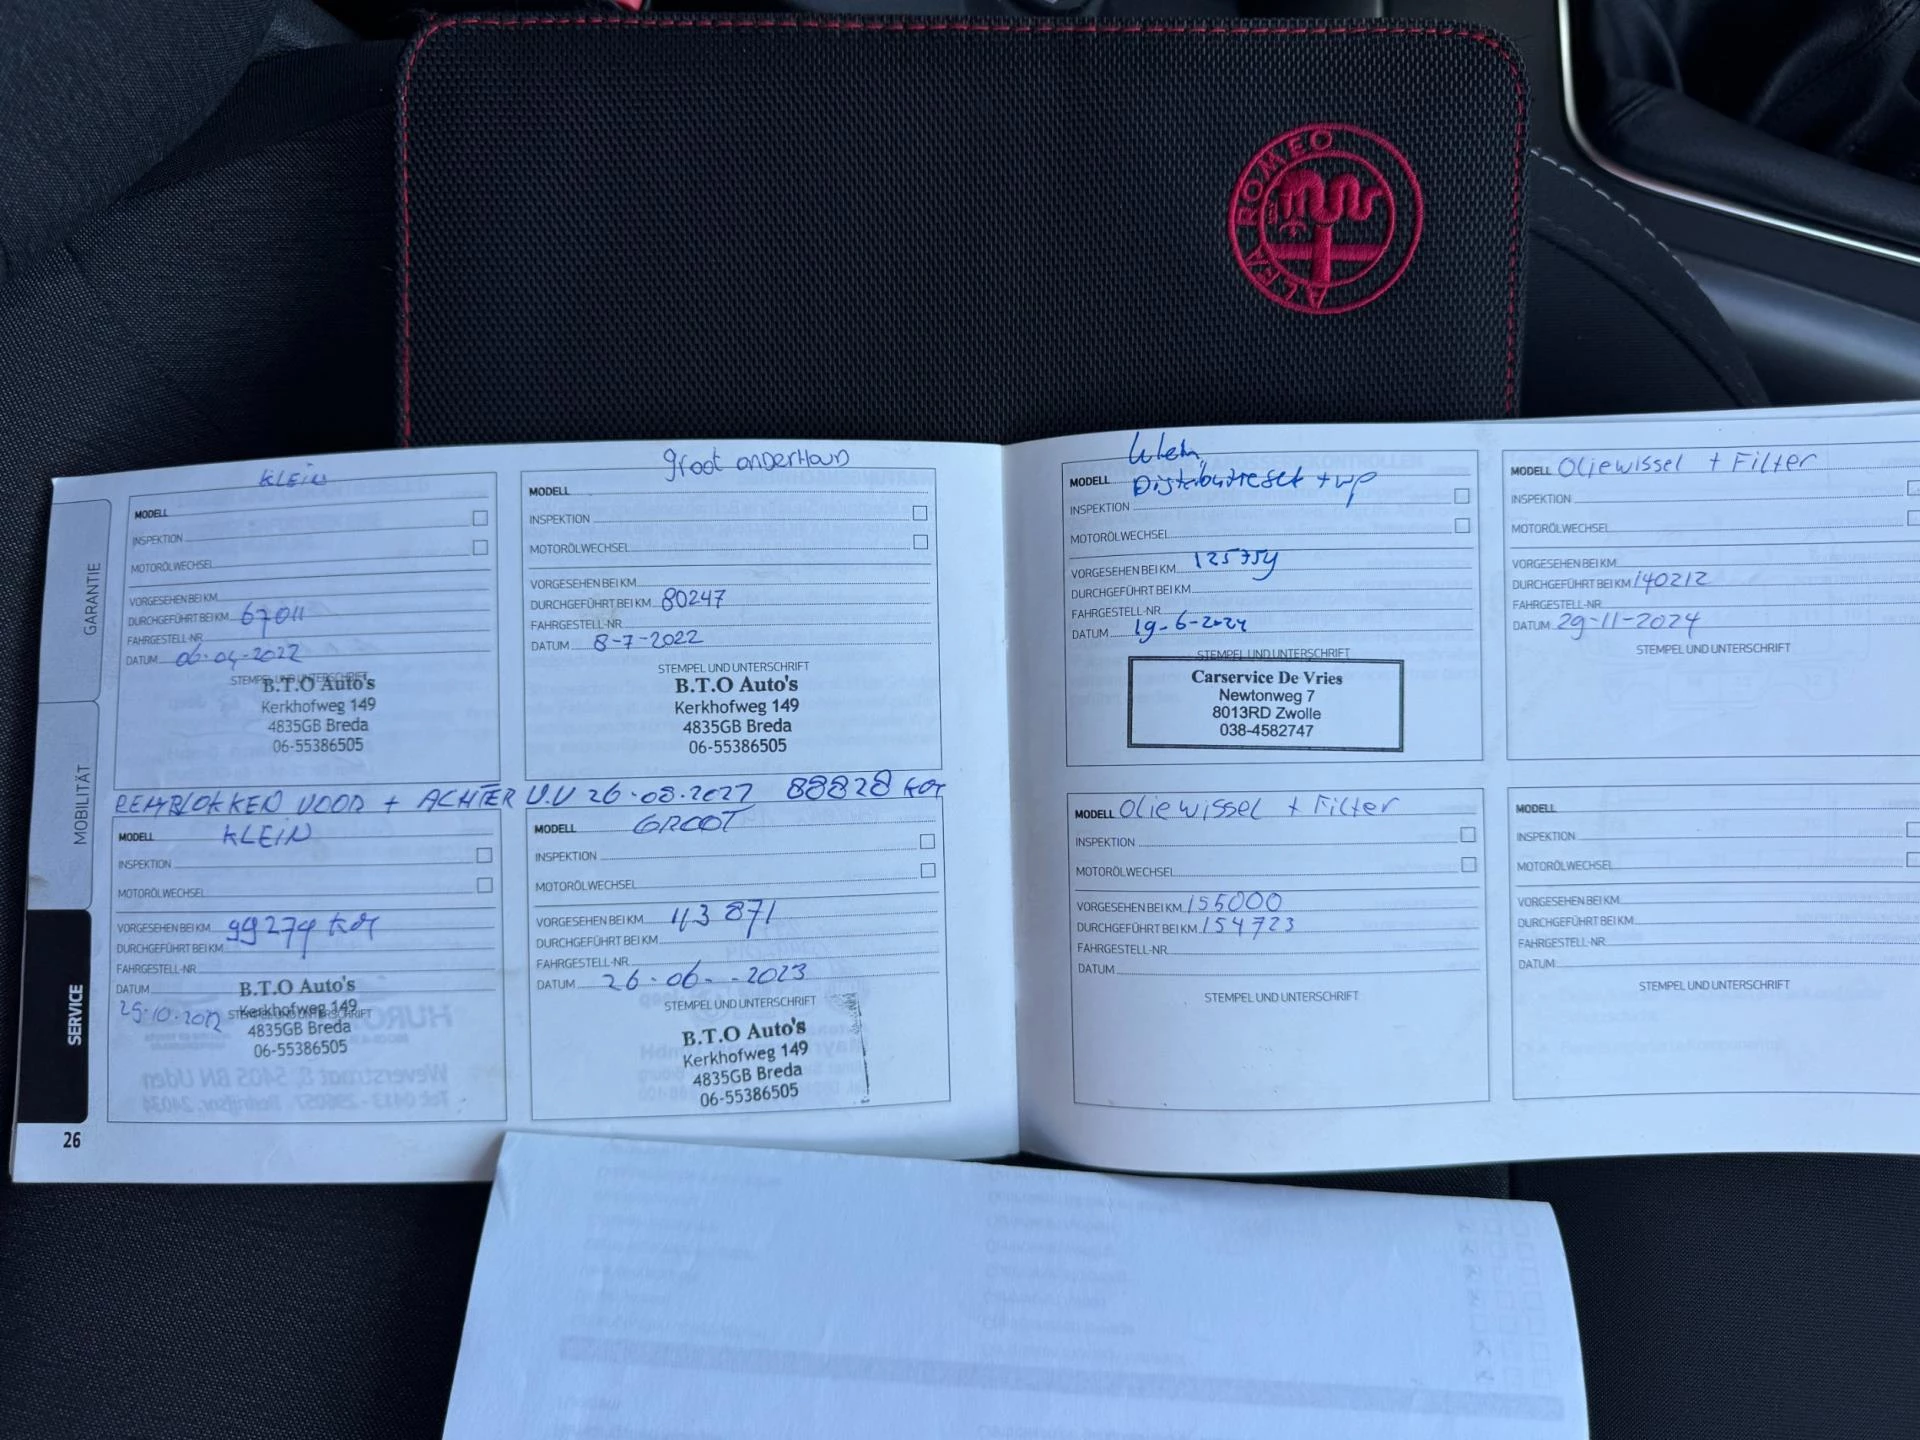 ALFA ROMEO
GARANTIE
MOBILITÄT
SERVICE
26
KLEIN
MODELL
INSPEKTION
MOTORÖLWECHSEL
VORGESEHEN BEI KM
DURCHGEFÜHRT BEI KM 67011
FAHRGESTELL-NR.
DATUM 06-04-2022
STEMPEL UND UNTERSCHRIFT
B.T.O Auto's
Kerkhofweg 149
4835GB Breda
06-55386505
groot onderHoud
MODELL
INSPEKTION
MOTORÖLWECHSEL
VORGESEHEN BEI KM
DURCHGEFÜHRT BEI KM 80247
FAHRGESTELL-NR
DATUM 8-7-2022
STEMPEL UND UNTERSCHRIFT
B.T.O Auto's
Kerkhofweg 149
4835GB Breda
06-55386505
REMBLOKKEN VOOR + ACHTER V.V 26-08-2022 88828
MODELL KLEIN
INSPEKTION
MOTORÖLWECHSEL
VORGESEHEN BEI KM 99274
DURCHGEFÜHRT BEI KM
FAHRGESTELL-NR
DATUM
25-10-2022
STEMPEL UND UNTERSCHRIFT
B.T.O Auto's
Kerkhofweg 149
4835GB Breda
06-55386505
MODELL GROOT
INSPEKTION
MOTORÖLWECHSEL
VORGESEHEN BEI KM 113 871
DURCHGEFÜHRT BEI KM
FAHRGESTELL-NR
DATUM 26-06-2023
STEMPEL UND UNTERSCHRIFT
B.T.O Auto's
Kerkhofweg 149
4835GB Breda
06-55386505
Klein,
MODELL Distributieset + wp
INSPEKTION
MOTORÖLWECHSEL
VORGESEHEN BEI KM 125754
DURCHGEFÜHRT BEI KM
FAHRGESTELL-NR
DATUM 19-6-2024
STEMPEL UND UNTERSCHRIFT
Carservice De Vries
Newtonweg 7
8013RD Zwolle
038-4582747
MODELL Oliewissel + Filter
INSPEKTION
MOTORÖLWECHSEL
VORGESEHEN BEI KM
DURCHGEFÜHRT BEI KM 140212
FAHRGESTELL-NR
DATUM 29-11-2024
STEMPEL UND UNTERSCHRIFT
MODELL Oliewissel + Filter
INSPEKTION
MOTORÖLWECHSEL
VORGESEHEN BEI KM 155000
DURCHGEFÜHRT BEI KM 154723
FAHRGESTELL-NR
DATUM
STEMPEL UND UNTERSCHRIFT
MODELL
INSPEKTION
MOTORÖLWECHSEL
VORGESEHEN BEI KM
DURCHGEFÜHRT BEI KM
FAHRGESTELL-NR
DATUM
STEMPEL UND UNTERSCHRIFT